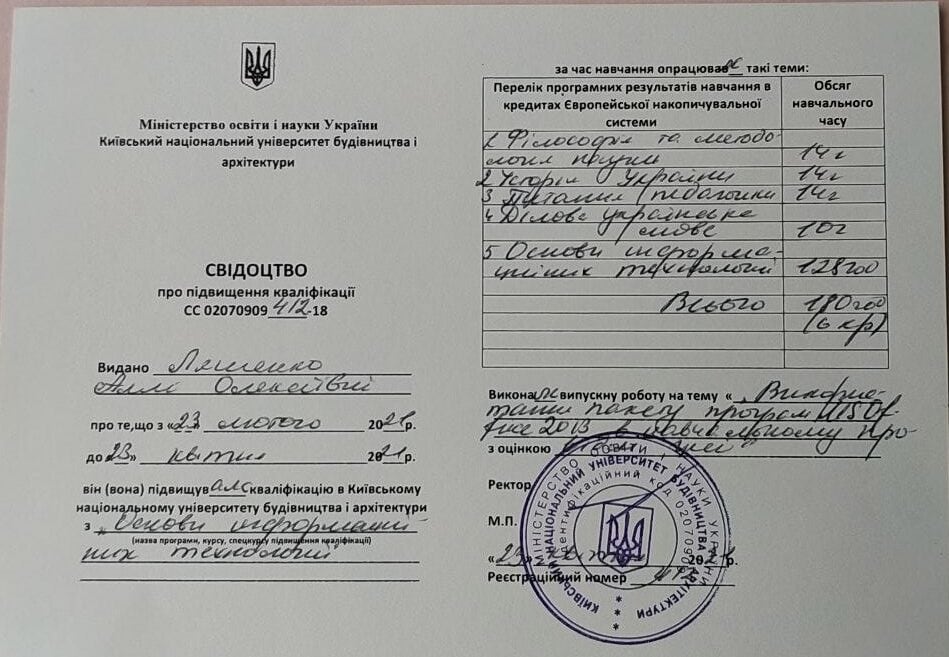 Міністерство освіти і науки України
Київський національний університет будівництва і
архітектури
СВІДОЦТВО
про підвищення кваліфікації
СС 02070909 412-18
Видано Ляшенко
Аллі Олексіївні
про те,що з «23» лютого 2021р.
до «23» квітня 2021р.
він (вона) підвищувала кваліфікацію в Київському
національному університету будівництва і архітектури
з „Основи інформацій-
(назва програми, курсу, спецкурсу підвищення кваліфікації)
них технологій"
за час навчання опрацювала такі теми:
Перелік програмних результатів навчання в
кредитах Європейської накопичувальної
системи
Обсяг
навчального
часу
1 Філософія та методо-
логія науки 14г
2 Історія України 14г
3 Питання педагогіки 14г
4 Ділова українська
мова 10г
5 Основи інформа-
ційних технологій 128год
Всього 180год
(6 кр)
Виконала випускну роботу на тему « „Викорис-
тання пакету програм MS Of-
fice 2013 в навчальному про-
з оцінкою
Ректор
М.П.
«23» квітня 2021р.
Реєстраційний номер 412
МІНІСТЕРСТВО ОСВІТИ І НАУКИ УКРАЇНИ
КИЇВСЬКИЙ НАЦІОНАЛЬНИЙ УНІВЕРСИТЕТ БУДІВНИЦТВА І АРХІТЕКТУРИ
Ідентифікаційний код 02070909